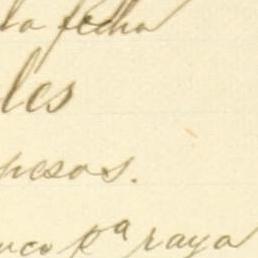 la fecha
les
pesos.
nco pª raya